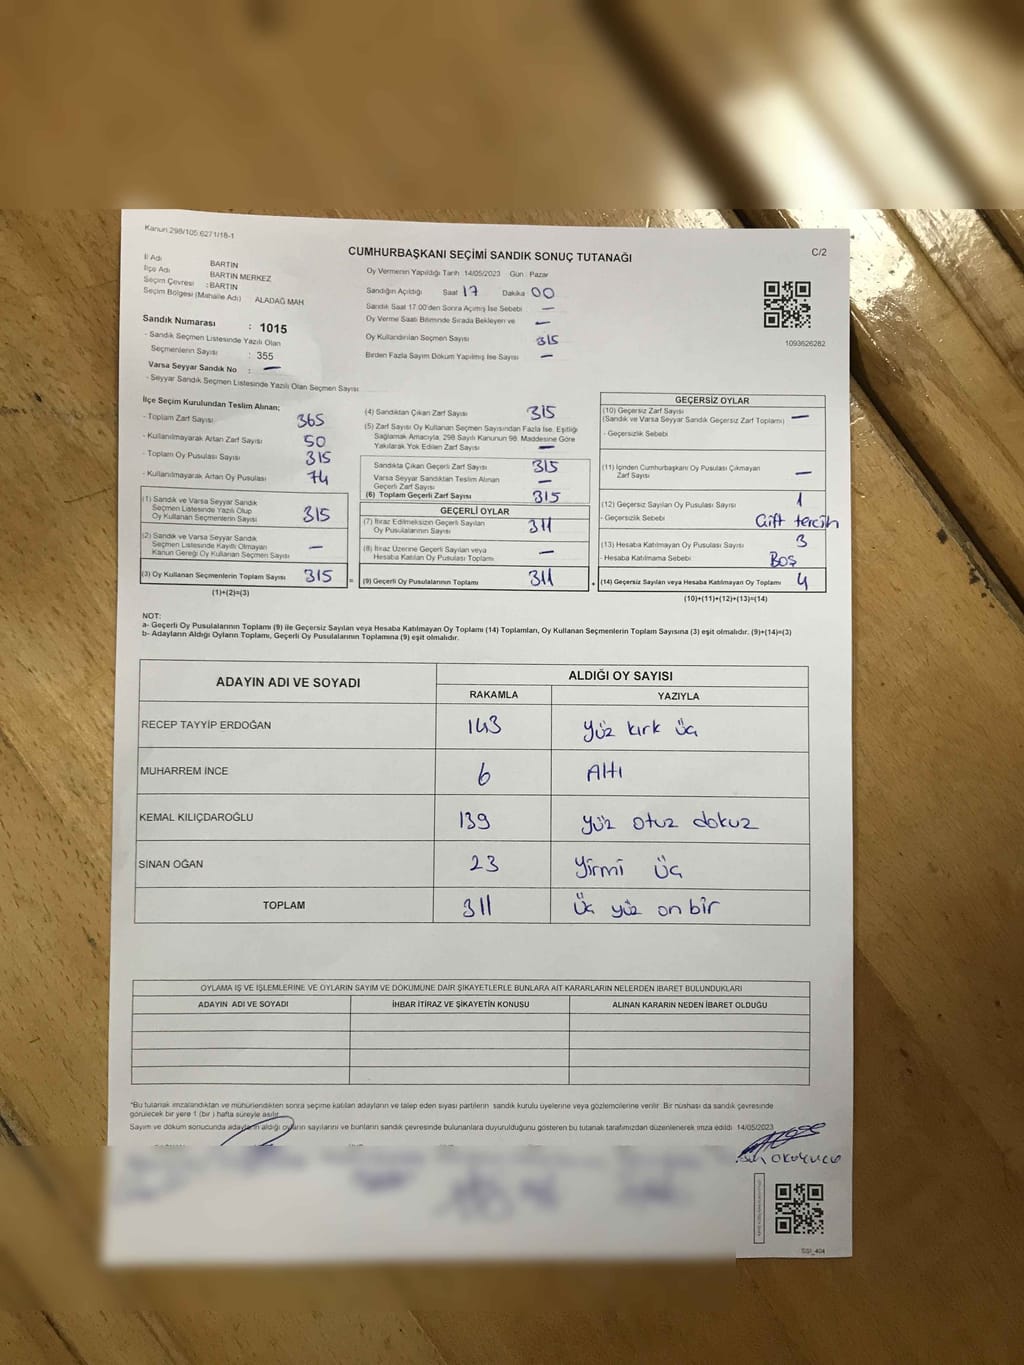 Kanun:298/105,6271/18-1
CUMHURBAŞKANI SEÇİMİ SANDIK SONUÇ TUTANAĞI
C/2
İl Adı BARTIN
İlçe Adı BARTIN MERKEZ
Seçim Çevresi : BARTIN
Seçim Bölgesi (Mahalle Adı) ALADAĞ MAH
Sandık Numarası : 1015
- Sandık Seçmen Listesinde Yazılı Olan
Seçmenlerin Sayısı : 355
Varsa Seyyar Sandık No : —
- Seyyar Sandık Seçmen Listesinde Yazılı Olan Seçmen Sayısı
Oy Vermenin Yapıldığı Tarih 14/05/2023 Gün : Pazar
Sandığın Açıldığı Saat 17 Dakika 00
Sandık Saat 17:00'den Sonra Açımış İse Sebebi —
Oy Verme Saati Bitiminde Sırada Bekleyen ve —
Oy Kullandırılan Seçmen Sayısı 315
Birden Fazla Sayım Döküm Yapılmış İse Sayısı —
1093626262
İlçe Seçim Kurulundan Teslim Alınan;
- Toplam Zarf Sayısı 365
- Kullanılmayarak Artan Zarf Sayısı 50
- Toplam Oy Pusulası Sayısı 315
- Kullanılmayarak Artan Oy Pusulası 74
(1) Sandık ve Varsa Seyyar Sandık
Seçmen Listesinde Yazılı Olup
Oy Kullanan Seçmenlerin Sayısı 315
(2) Sandık ve Varsa Seyyar Sandık
Seçmen Listesinde Kayıtlı Olmayan
Kanun Gereği Oy Kullanan Seçmen Sayısı —
(3) Oy Kullanan Seçmenlerin Toplam Sayısı 315
(1)+(2)=(3)
(4) Sandıktan Çıkan Zarf Sayısı 315
(5) Zarf Sayısı Oy Kullanan Seçmen Sayısından Fazla İse, Eşitliği
Sağlamak Amacıyla, 298 Sayılı Kanunun 98. Maddesine Göre
Yakılarak Yok Edilen Zarf Sayısı —
Sandıkta Çıkan Geçerli Zarf Sayısı 315
Varsa Seyyar Sandıktan Teslim Alınan
Geçerli Zarf Sayısı —
(6) Toplam Geçerli Zarf Sayısı 315
GEÇERLİ OYLAR
(7) İtiraz Edilmeksizin Geçerli Sayılan
Oy Pusulalarının Sayısı 311
(8) İtiraz Üzerine Geçerli Sayılan veya
Hesaba Katılan Oy Pusulası Toplamı —
= (9) Geçerli Oy Pusulalarının Toplamı 311
GEÇERSİZ OYLAR
(10) Geçersiz Zarf Sayısı
(Sandık ve Varsa Seyyar Sandık Geçersiz Zarf Toplamı) —
- Geçersizlik Sebebi
(11) İçinden Cumhurbaşkanı Oy Pusulası Çıkmayan
Zarf Sayısı —
(12) Geçersiz Sayılan Oy Pusulası Sayısı 1
- Geçersizlik Sebebi Çift tercih
(13) Hesaba Katılmayan Oy Pusulası Sayısı 3
- Hesaba Katılmama Sebebi Boş
+ (14) Geçersiz Sayılan veya Hesaba Katılmayan Oy Toplamı 4
(10)+(11)+(12)+(13)=(14)
NOT:
a- Geçerli Oy Pusulalarının Toplamı (9) ile Geçersiz Sayılan veya Hesaba Katılmayan Oy Toplamı (14) Toplamları, Oy Kullanan Seçmenlerin Toplam Sayısına (3) eşit olmalıdır. (9)+(14)=(3)
b- Adayların Aldığı Oyların Toplamı, Geçerli Oy Pusulalarının Toplamına (9) eşit olmalıdır.
ADAYIN ADI VE SOYADI ALDIĞI OY SAYISI
RAKAMLA YAZIYLA
RECEP TAYYİP ERDOĞAN 143 Yüz kırk üç
MUHARREM İNCE 6 Altı
KEMAL KILIÇDAROĞLU 139 Yüz otuz dokuz
SİNAN OĞAN 23 Yirmi üç
TOPLAM 311 üç yüz on bir
OYLAMA İŞ VE İŞLEMLERİNE VE OYLARIN SAYIM VE DÖKÜMÜNE DAİR ŞİKAYETLERLE BUNLARA AİT KARARLARIN NELERDEN İBARET BULUNDUKLARI
ADAYIN ADI VE SOYADI İHBAR İTİRAZ VE ŞİKAYETİN KONUSU ALINAN KARARIN NEDEN İBARET OLDUĞU
*Bu tutanak imzalandıktan ve mühürlendikten sonra seçime katılan adayların ve talep eden siyasi partilerin sandık kurulu üyelerine veya gözlemcilerine verilir. Bir nüshası da sandık çevresinde
görülecek bir yere 1 (bir) hafta süreyle asılır.
Sayım ve döküm sonucunda adayların aldığı oyların sayılarını ve bunların sandık çevresinde bulunanlara duyurulduğunu gösteren bu tutanak tarafımızdan düzenlenerek imza edildi 14/05/2023
OKUYUCU
SSI_404